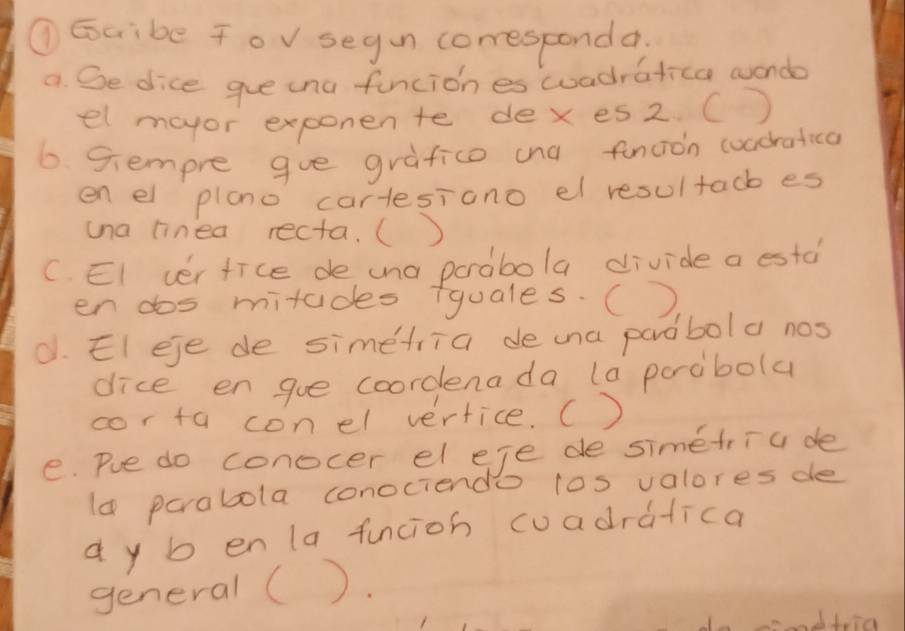 ① Escribe F o V segun corresponda.
a. Se dice que una función es cuadrática cuando
el mayor exponente de x es 2. ( )
b. Siempre que gráfico una función cuadratica
en el plano cartesiano el resultado es
una linea recta. ( )
c. El vértice de una parábola divide a está
en dos mitades iguales. ( )
d. El eje de simétria de una parábola nos
dice en que coordenada la parábola
corta con el vértice. ( )
e. Puedo conocer el eje de simétria de
la parabola conociendo los valores de
a y b en la función cuadrática
general ( ).